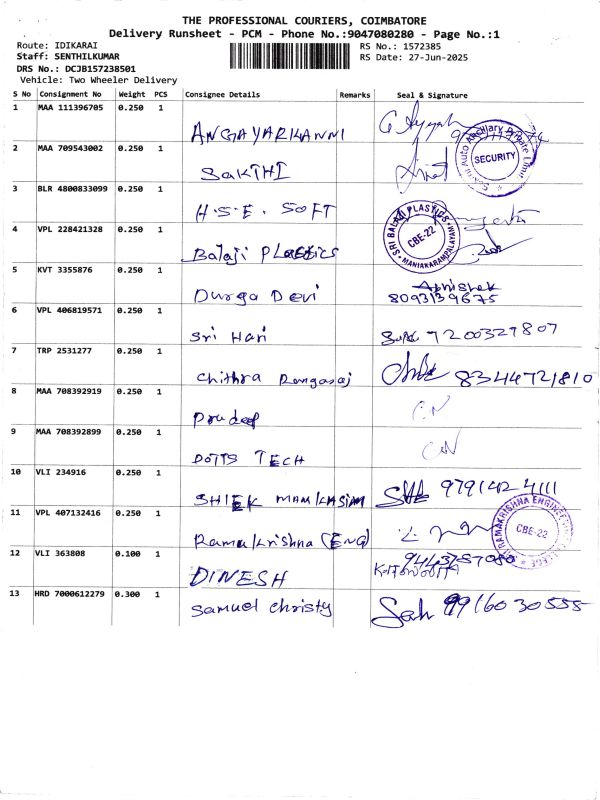 THE PROFESSIONAL COURIERS, COIMBATORE
Delivery Runsheet - PCM - Phone No.:9047080280 - Page No.:1
Route: IDIKARAI RS No.: 1572385
Staff: SENTHILKUMAR RS Date: 27-Jun-2025
DRS No.: DCJB157238501
Vehicle: Two Wheeler Delivery
S No Consignment No Weight PCS Consignee Details Remarks Seal & Signature
1 MAA 111396705 0.250 1
ANGAYARKANNI
2 MAA 709543002 0.250 1
SAKTHI
SECURITY
3 BLR 4800833099 0.250 1
H.S.E. SOFT
4 VPL 228421328 0.250 1
Balaji PLastics
SRI BALAJI PLASTICS CBE-22 MANIAKARAMPALAYAM
5 KVT 3355876 0.250 1
Durga Devi Abhishek
8093139675
6 VPL 406819571 0.250 1
Sri Hari 7200327807
7 TRP 2531277 0.250 1
Chithra Rangasaj 8344721810
8 MAA 708392919 0.250 1
Pradeep
9 MAA 708392899 0.250 1
DOTTS TECH
10 VLI 234916 0.250 1
SHIEK 9791424111
11 VPL 407132416 0.250 1
Ramakrishna (ENG)
SRI RAMAKRISHNA ENGINEERING CBE-22
12 VLI 363808 0.100 1
DINESH
13 HRD 7000612279 0.300 1
Samuel Christy 9916030555